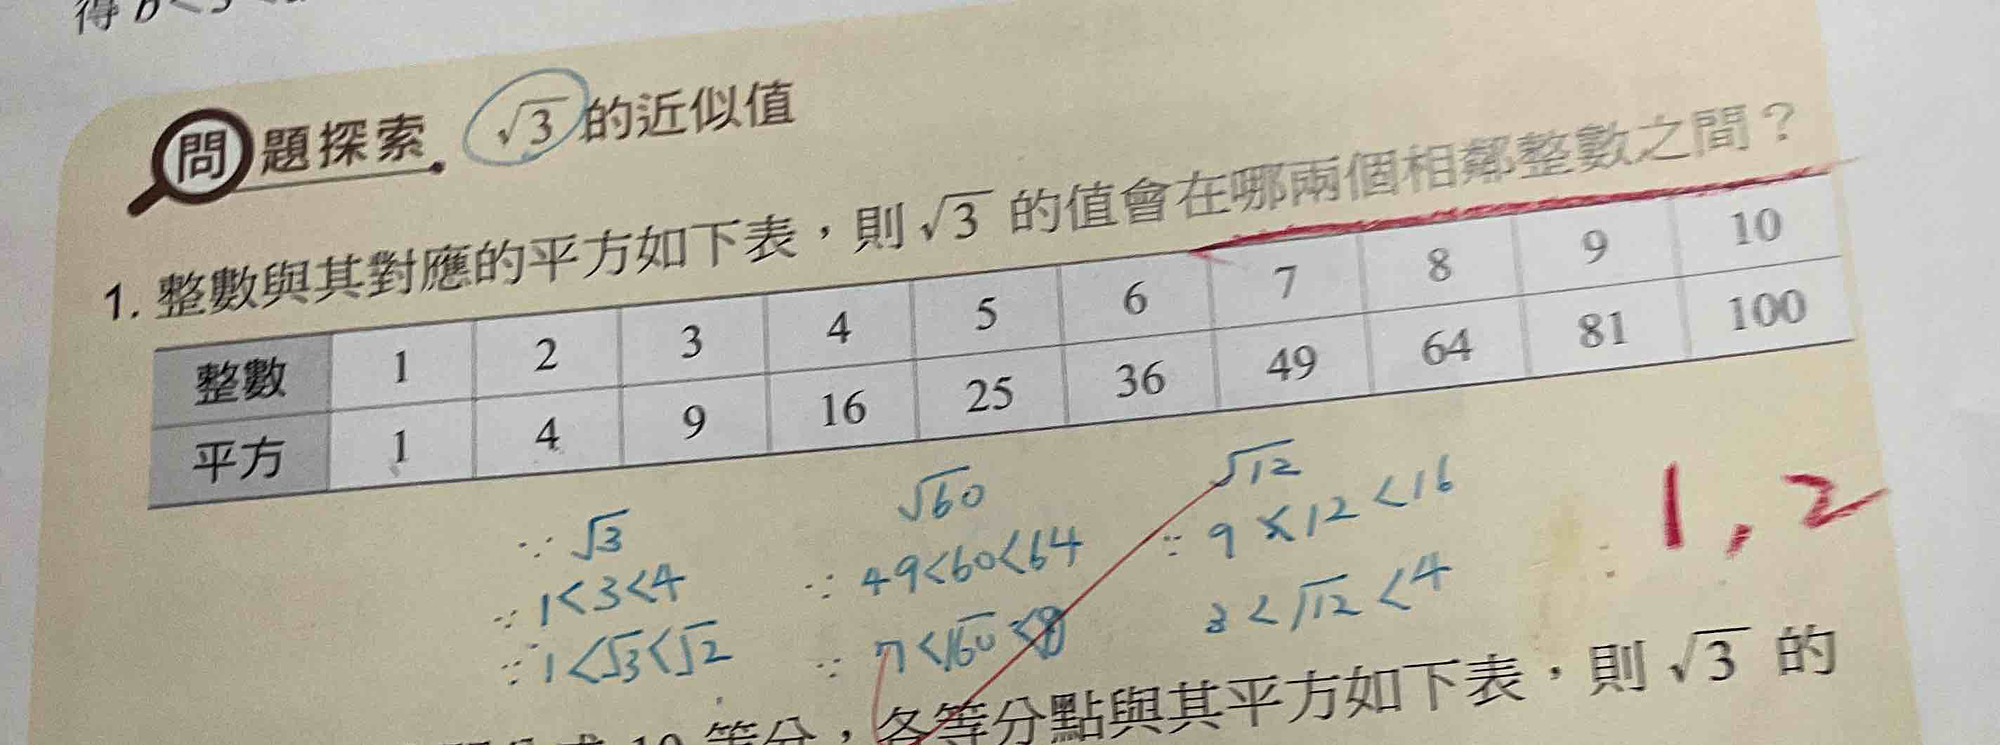 得 b<
問題探索 √3 的近似值
1. 整數與其對應的平方如下表，則 √3 的值會在哪兩個相鄰整數之間？
整數 1 2 3 4 5 6 7 8 9 10
平方 1 4 9 16 25 36 49 64 81 100
∵ √3
∵ 1<3<4
∵ 1<√3<√2
√60
∵ 49<60<64
∵ 7<√60<8
√12
∵ 9<12<16
3<√12<4
1,2
10 等分，各等分點與其平方如下表，則 √3 的